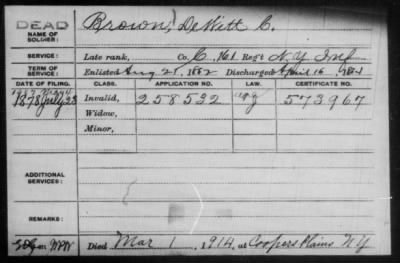 DEAD
NAME OF SOLDIER: Brown, DeWitt C.
SERVICE: Late rank, Co. C, 161 Reg't N.Y. Inf
TERM OF SERVICE: Enlisted Aug 21, 1862 Discharged April 15, 1864
DATE OF FILING. CLASS. APPLICATION NO. LAW. CERTIFICATE NO.
1878 July 23 Invalid, 258522 573967
Widow,
Minor,
ADDITIONAL SERVICES:
REMARKS:
Died Mar 1, 1914, at Coopers Plains N.Y.